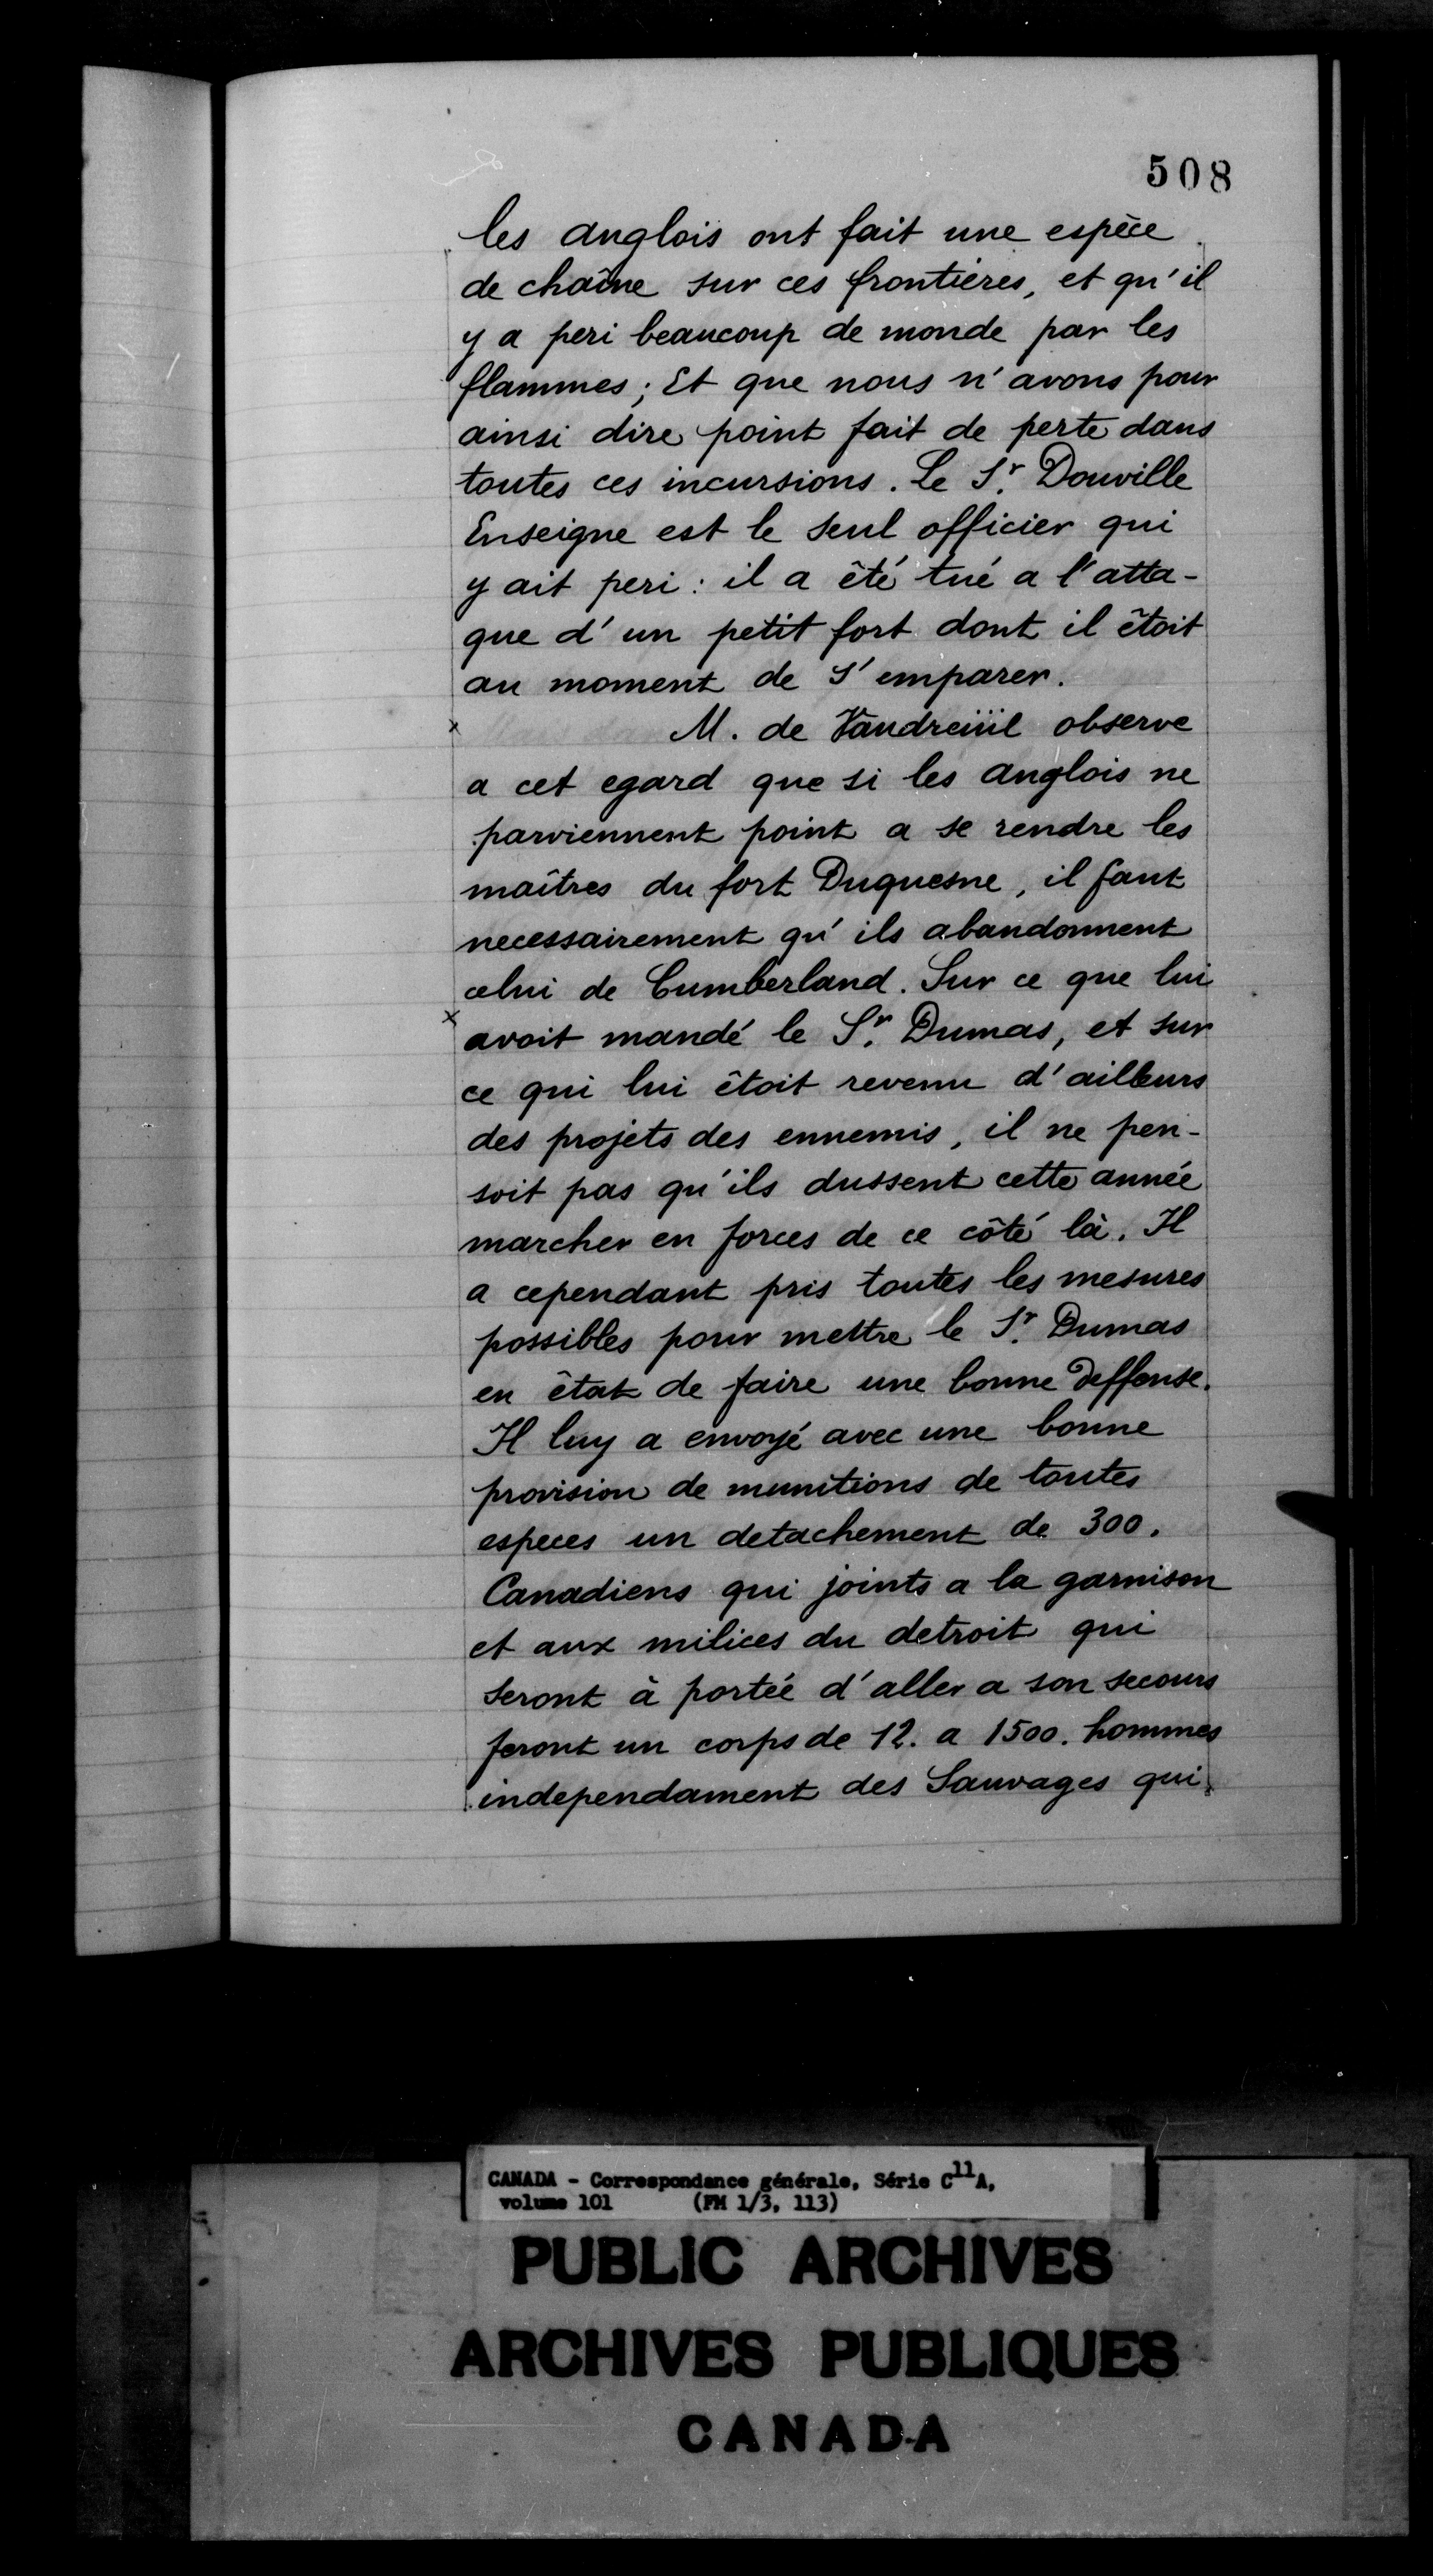 508
les anglois ont fait une espèce
de chaîne sur ces frontières, et qu'il
y a peri beaucoup de monde par les
flammes; Et que nous n'avons pour
ainsi dire point fait de perte dans
toutes ces incursions. Le Sr. Douville
Enseigne est le seul officier qui
y ait peri: il a été tué a l'atta-
que d'un petit fort dont il êtoit
au moment de S'emparer.
x M. de Vaudreüil observe
a cet egard que si les anglois ne
parviennent point a se rendre les
maîtres du fort Duquesne, il faut
necessairement qu'ils abandonnent
celui de Cumberland. Sur ce que lui
x avoit mandé le Sr. Dumas, et sur
ce qui lui êtoit revenu d'ailleurs
des projets des ennemis, il ne pen-
soit pas qu'ils dussent cette année
marcher en forces de ce côté là. Il
a cependant pris toutes les mesures
possibles pour mettre le Sr. Dumas
en êtat de faire une bonne deffense.
Il luy a envoyé avec une bonne
provision de munitions de toutes
especes un detachement de 300.
Canadiens qui joints a la garnison
et aux milices du detroit qui
seront à portée d'aller a son secours
feront un corps de 12. a 1500. hommes
independament des Sauvages qui
CANADA - Correspondance générale, Série C11A,
volume 101 (FM 1/3, 113)
PUBLIC ARCHIVES
ARCHIVES PUBLIQUES
CANADA